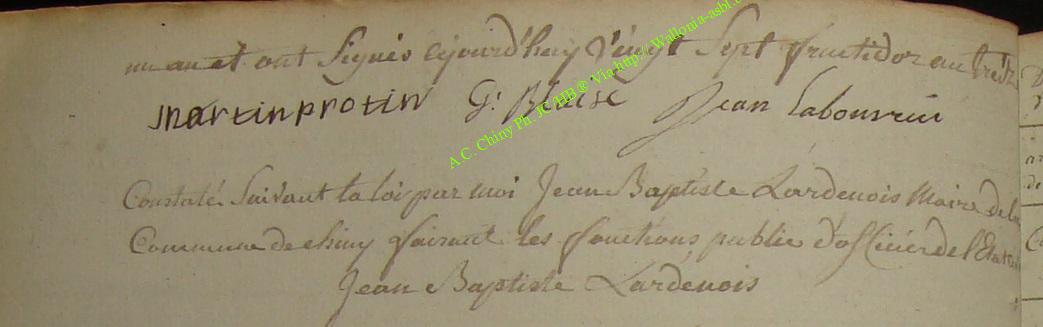 et ont Signés ajourd'huy Vingt Sept fructidor an treiz
martin protin G: Blaise Jean Labourriu
Constaté Suivant la loi par moi Jean Baptiste Lardenois Maire de la
Commune de chiny faisant les fonctions public d'officiér de l'Etat
Jean Baptiste Lardenois
A.C. Chiny Ph. JC/HB ® Via http: Wallonia-asbl.